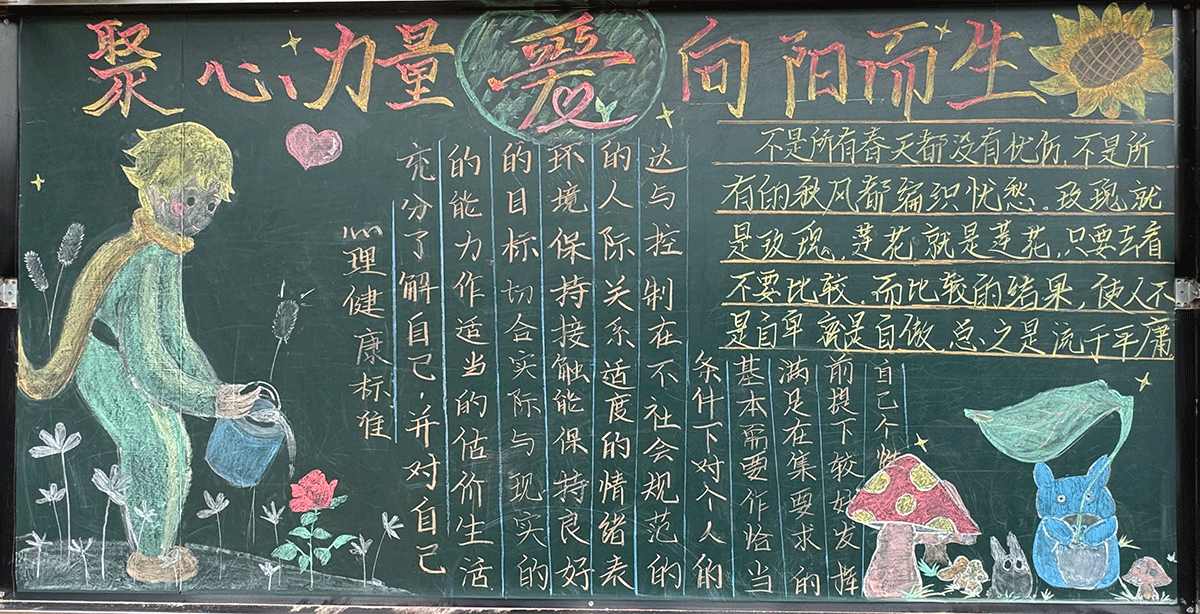 聚心力量 爱 向阳而生
不是所有春天都没有忧伤，不是所
有的秋风都编织忧愁。玫瑰就
是玫瑰，莲花就是莲花，只要去看
不要比较，而比较的结果，使人不
是自卑就是自傲，总之是流于平庸
心理健康标准
充分了解自己，并对自己
的能力作适当的估价生活
的目标切合实际与现实的
环境保持接触能保持良好
的人际关系适度的情绪表
达与控制在不社会规范的
条件下对个人的
基本需要作恰当
满足在集要求的
前提下较好发挥
自己个性